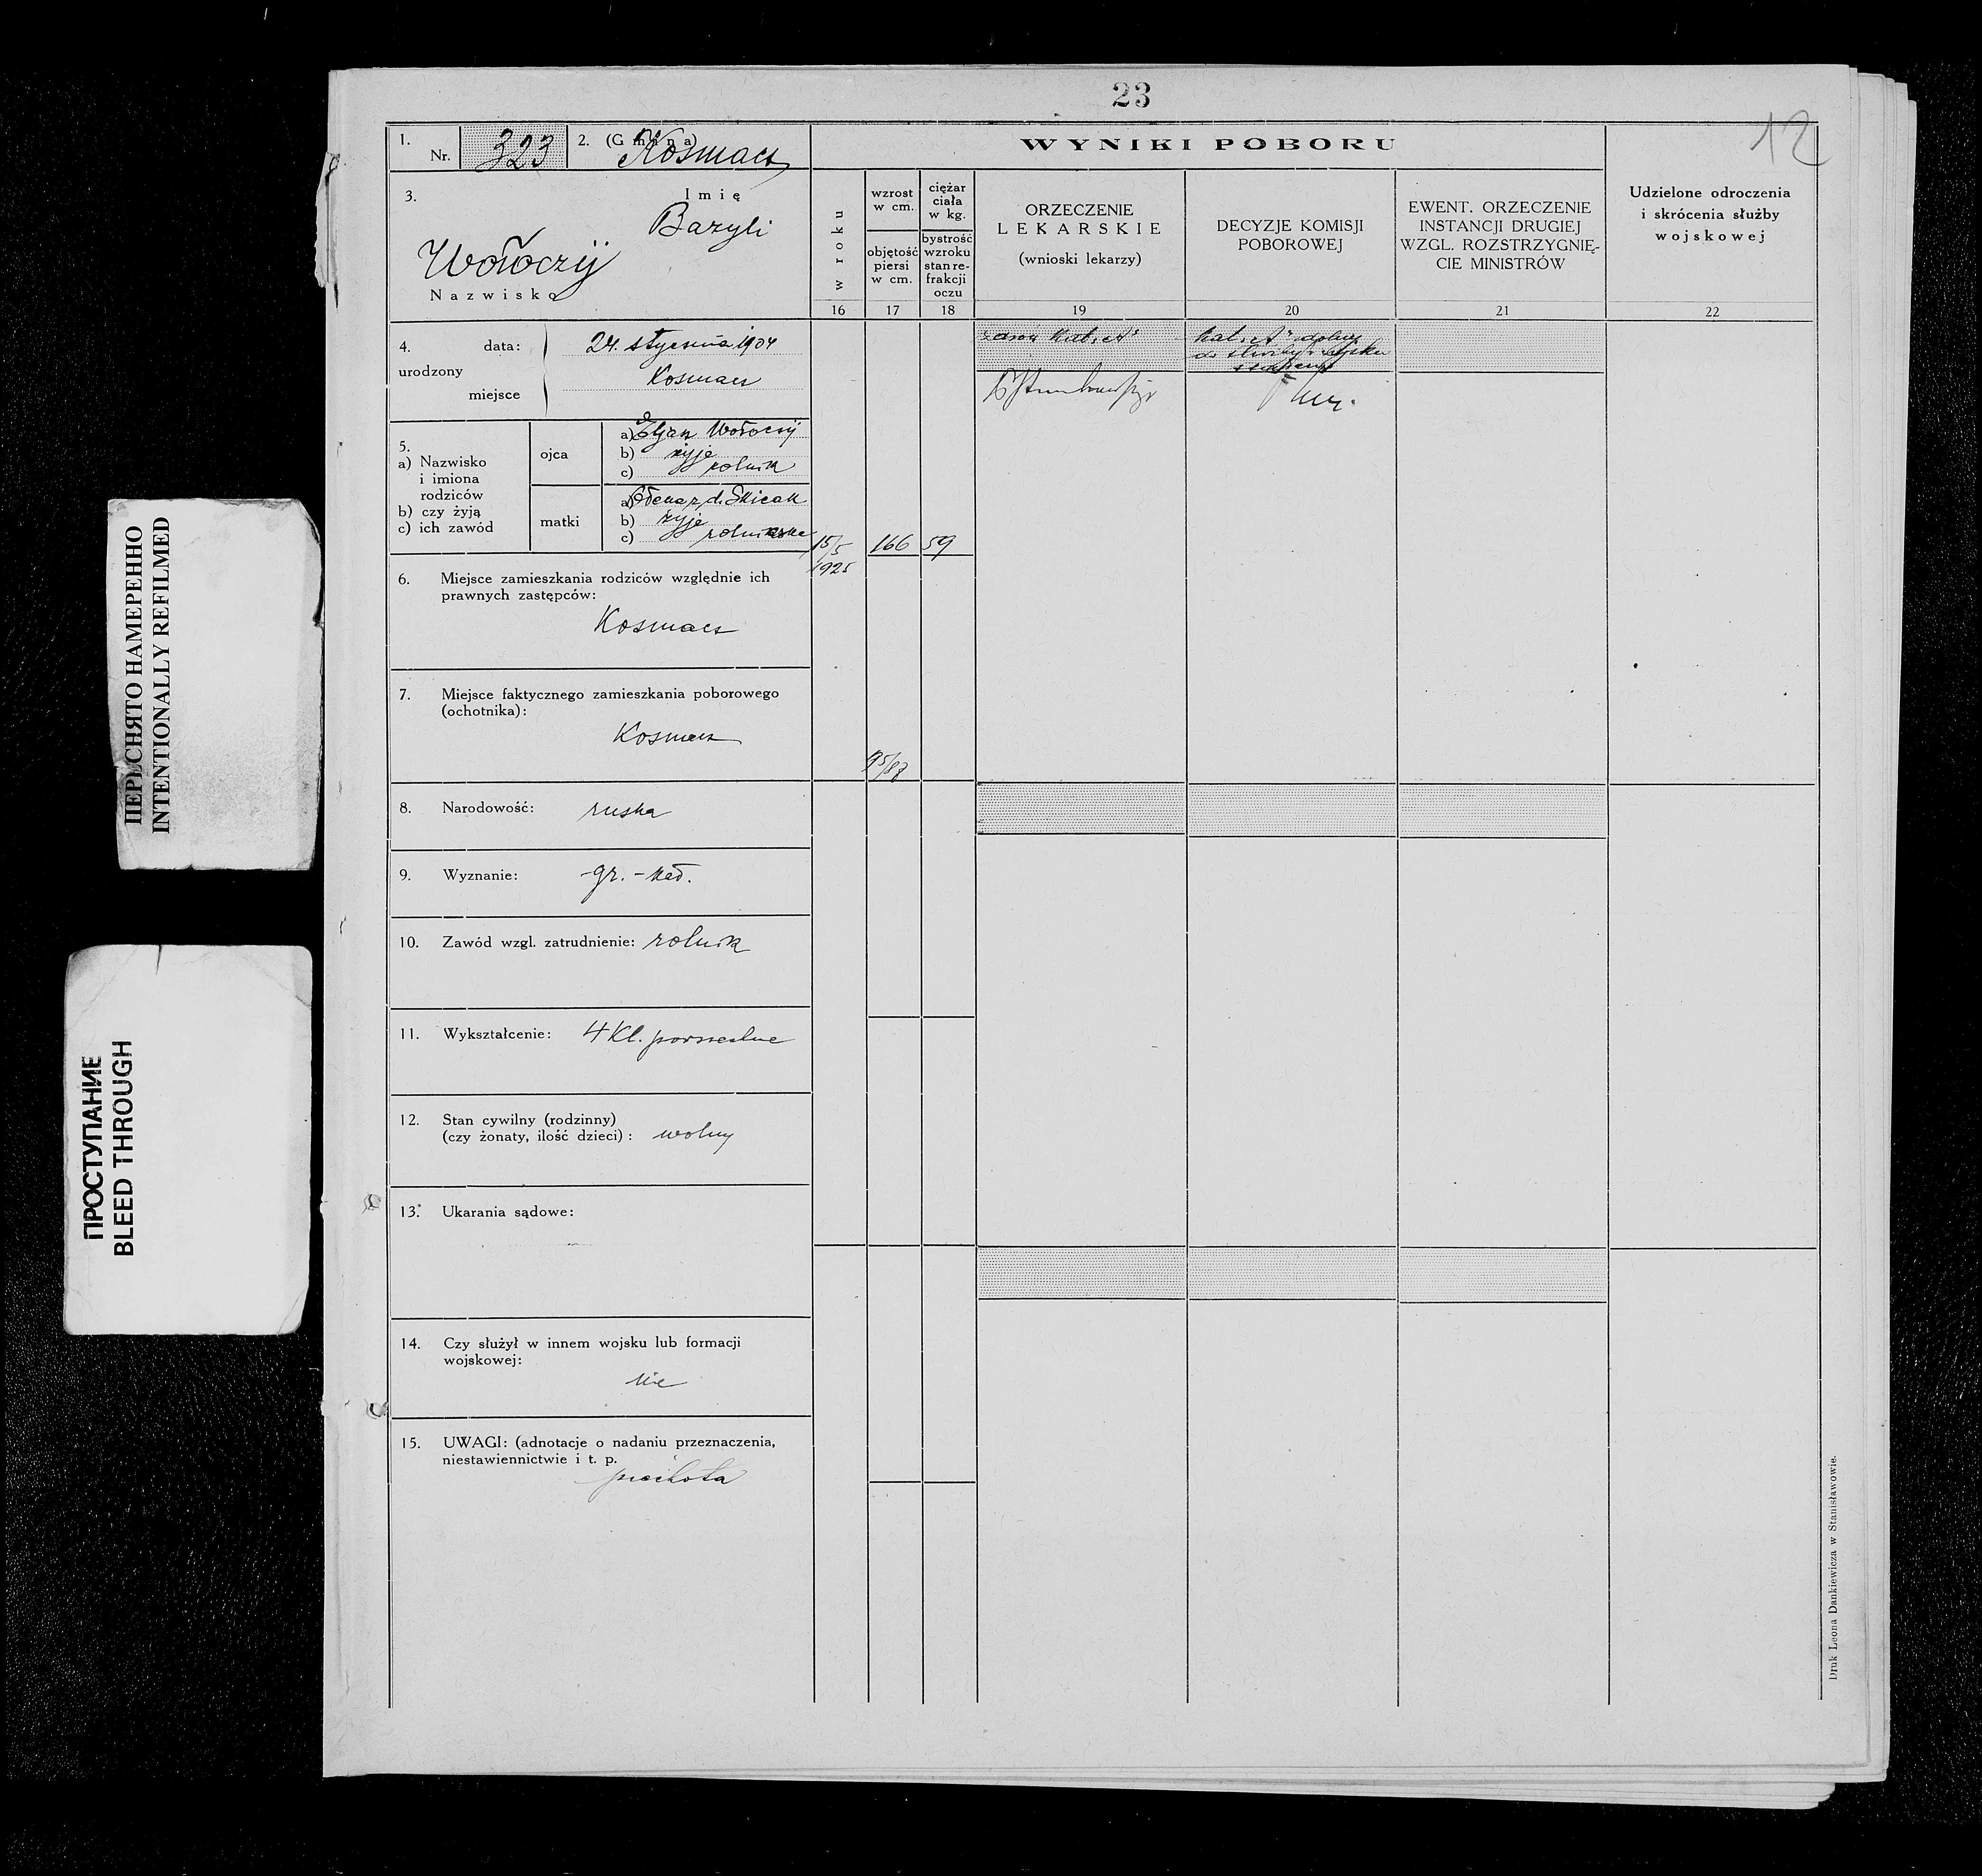 23
12
1. Nr. 323 2. (Gmina) Kosmacz
3. Imię
Bazyli
Wołoczij
Nazwisko
4. urodzony
data: 24. stycznia 1904
miejsce Kosmacz
5.
a) Nazwisko
i imiona
rodziców
b) czy żyją
c) ich zawód
ojca
a) Eljasz Wołoczij
b) żyje
c) rolnik
matki
a) Ołena z d. Skicak
b) żyje
c)
6. Miejsce zamieszkania rodziców względnie ich
prawnych zastępców:
Kosmacz
7. Miejsce faktycznego zamieszkania poborowego
(ochotnika):
Kosmacz
8. Narodowość: ruska
9. Wyznanie: gr.-kat.
10. Zawód wzgl. zatrudnienie: rolnik
11. Wykształcenie: 4 Kl. powszechne
12. Stan cywilny (rodzinny)
(czy żonaty, ilość dzieci): wolny
13. Ukarania sądowe:
14. Czy służył w innem wojsku lub formacji
wojskowej:
nie
15. UWAGI: (adnotacje o nadaniu przeznaczenia,
niestawiennictwie i t. p.
piechota
WYNIKI POBORU
w roku
16
wzrost
w cm.
objętość
piersi
w cm.
17
ciężar
ciała
w kg.
bystrość
wzroku
stan re-
frakcji
oczu
18
ORZECZENIE
LEKARSKIE
(wnioski lekarzy)
19
DECYZJE KOMISJI
POBOROWEJ
20
EWENT. ORZECZENIE
INSTANCJI DRUGIEJ
WZGL. ROZSTRZYGNIĘ-
CIE MINISTRÓW
21
Udzielone odroczenia
i skrócenia służby
wojskowej
22
15/5
1925
166
59
95/88
Druk Leona Dankiewicza w Stanisławowie.
ПЕРЕСНЯТО НАМЕРЕННО
INTENTIONALLY REFILMED
ПРОСТУПАНИЕ
BLEED THROUGH